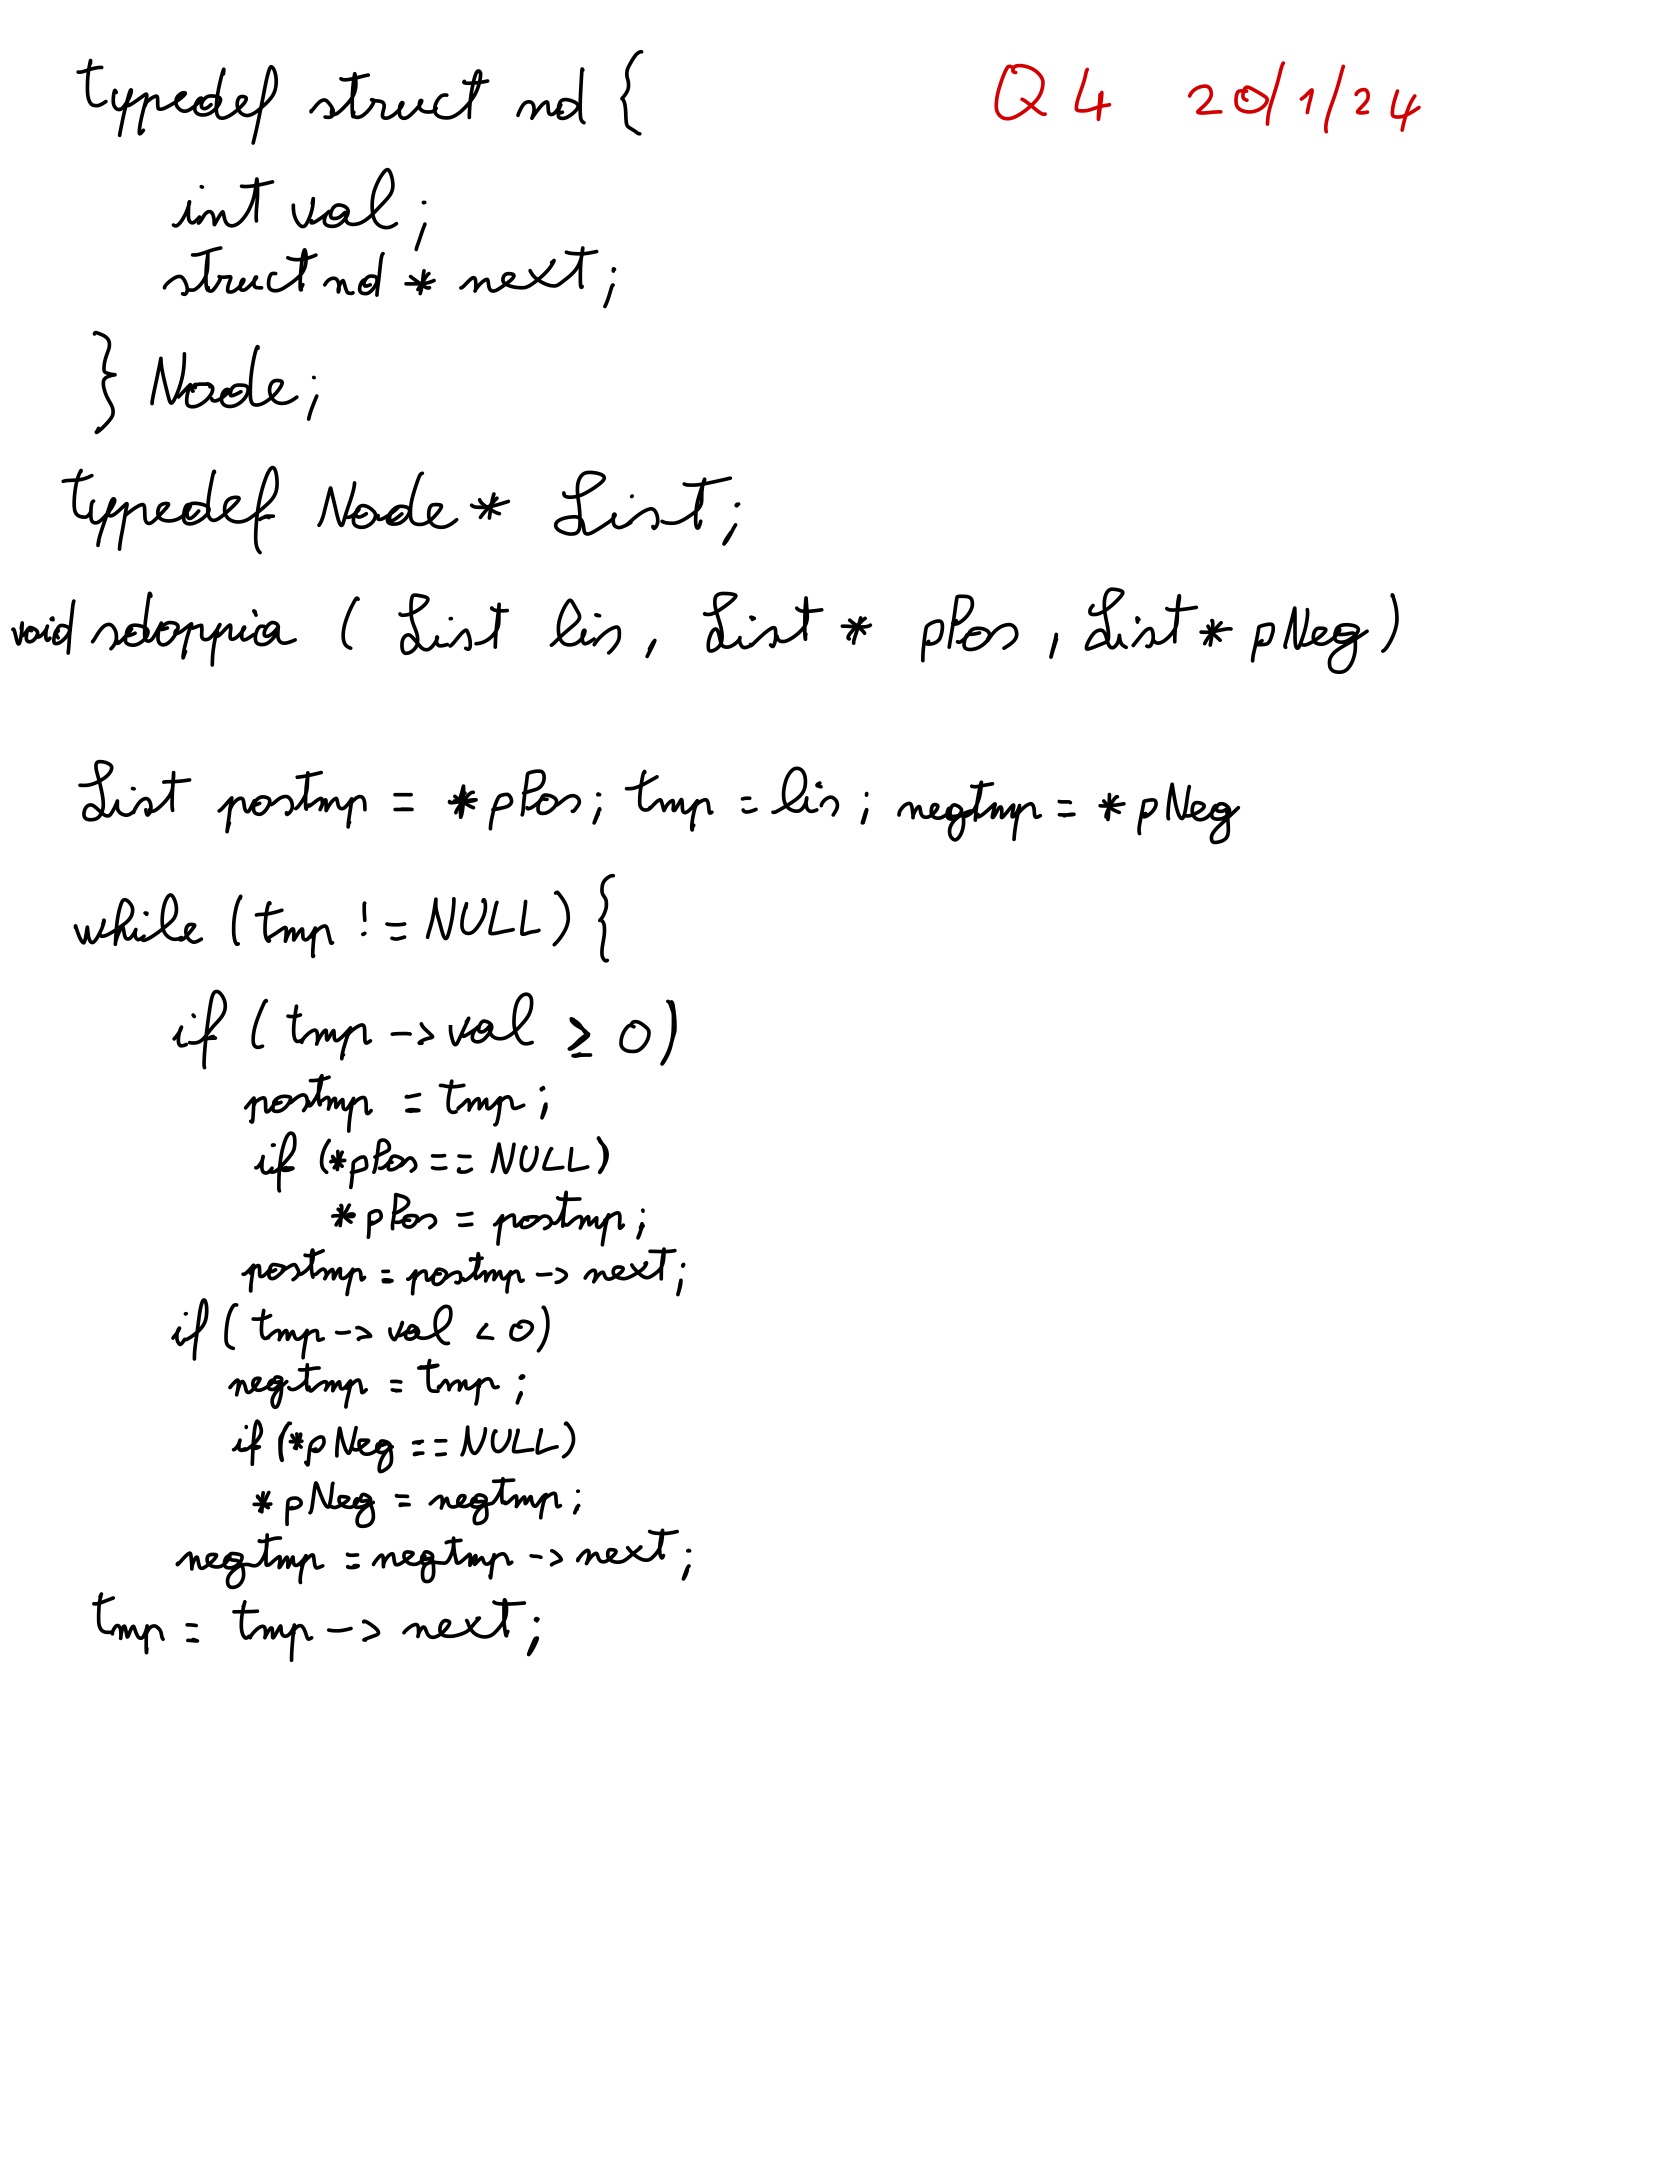 typedef struct nd {
Q4 20/1/24
int val;
struct nd * next;
} Node;
typedef Node * List;
void sdoppia ( List lis, List * pPos, List * pNeg)
List postmp = *pPos; tmp = lis; negtmp = *pNeg
while (tmp != NULL) {
if (tmp -> val ≥ 0)
postmp = tmp;
if (*pPos == NULL)
*pPos = postmp;
postmp = postmp -> next;
if (tmp -> val < 0)
negtmp = tmp;
if (*pNeg == NULL)
*pNeg = negtmp;
negtmp = negtmp -> next;
tmp = tmp -> next;